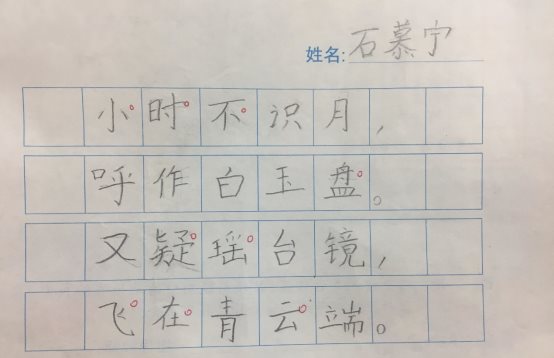 姓名:石慕宁
小时不识月,
呼作白玉盘。
又疑瑶台镜,
飞在青云端。